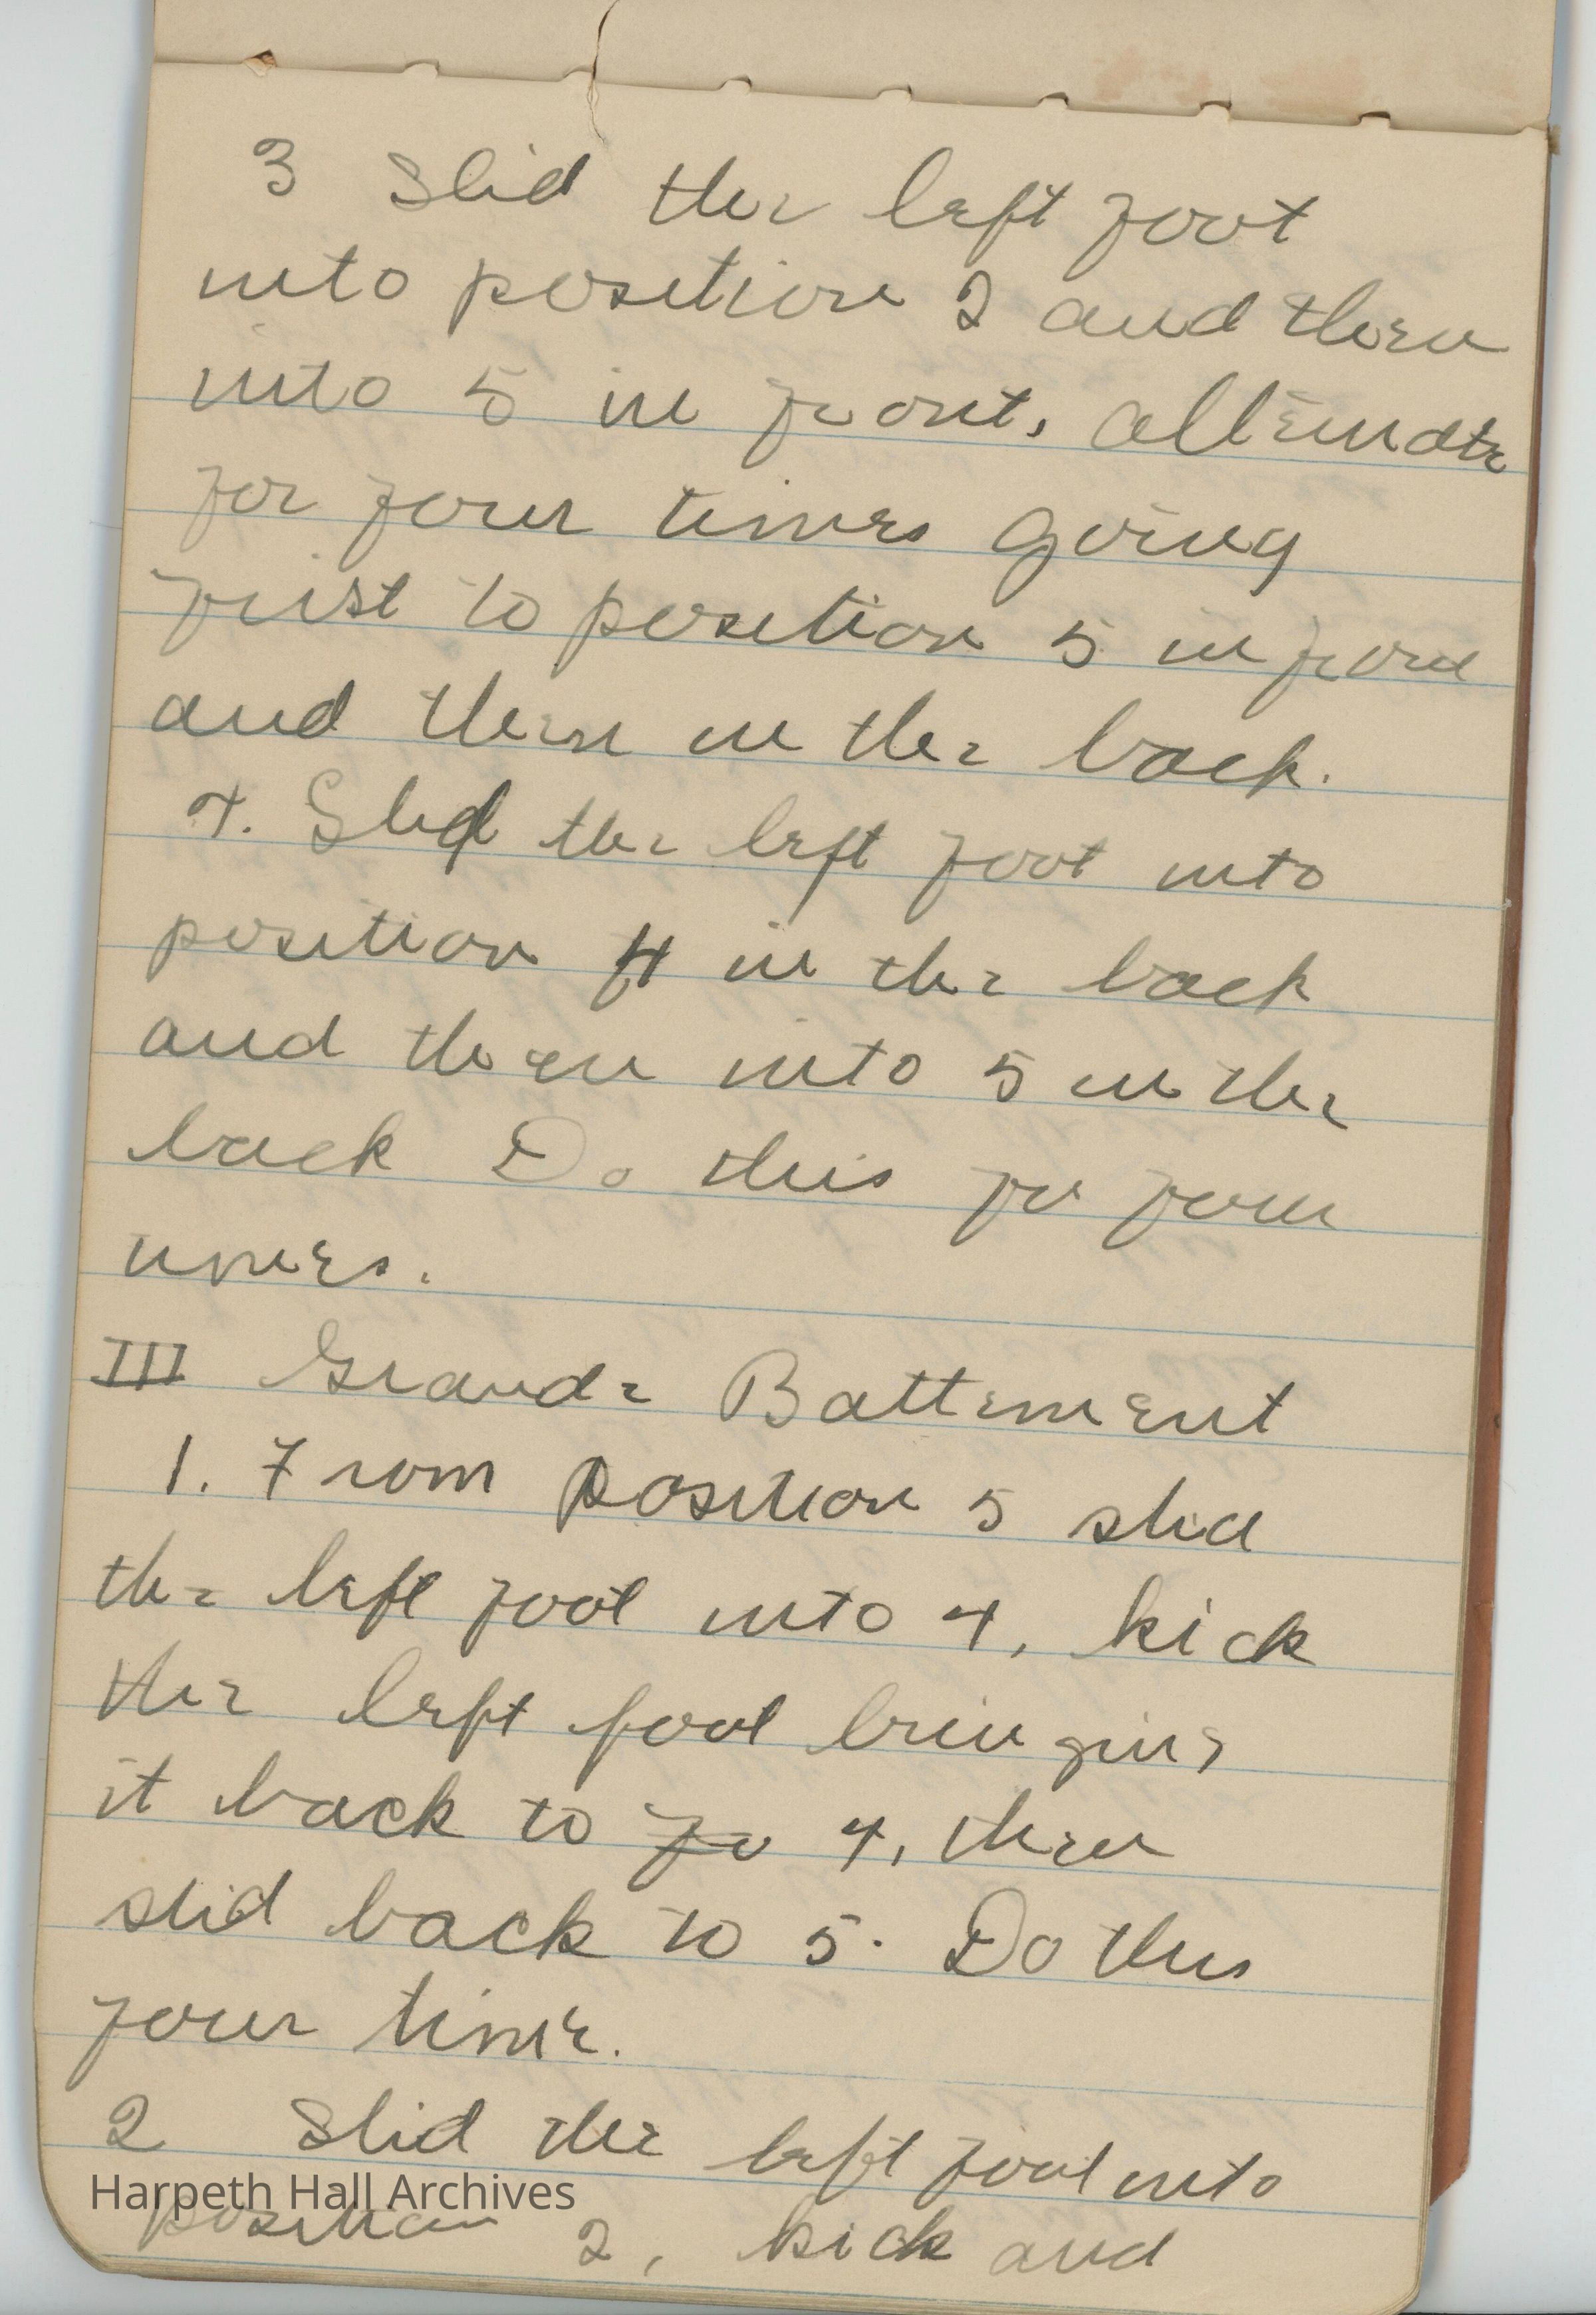 3 Slid the left foot
into position 2 and then
into 5 in front, alternate
for four times going
first to position 5 in front
and then in the back.
4. Slid the left foot into
position 4 in the back
and then into 5 in the
back Do this for four
times.
III Grande Battement
1. From position 5 slid
the left foot into 4, kick
the left foot bringing
it back to fo 4, then
slid back to 5. Do this
four time.
2 Slid the left foot into
Harpeth Hall Archives
position 2, kick and